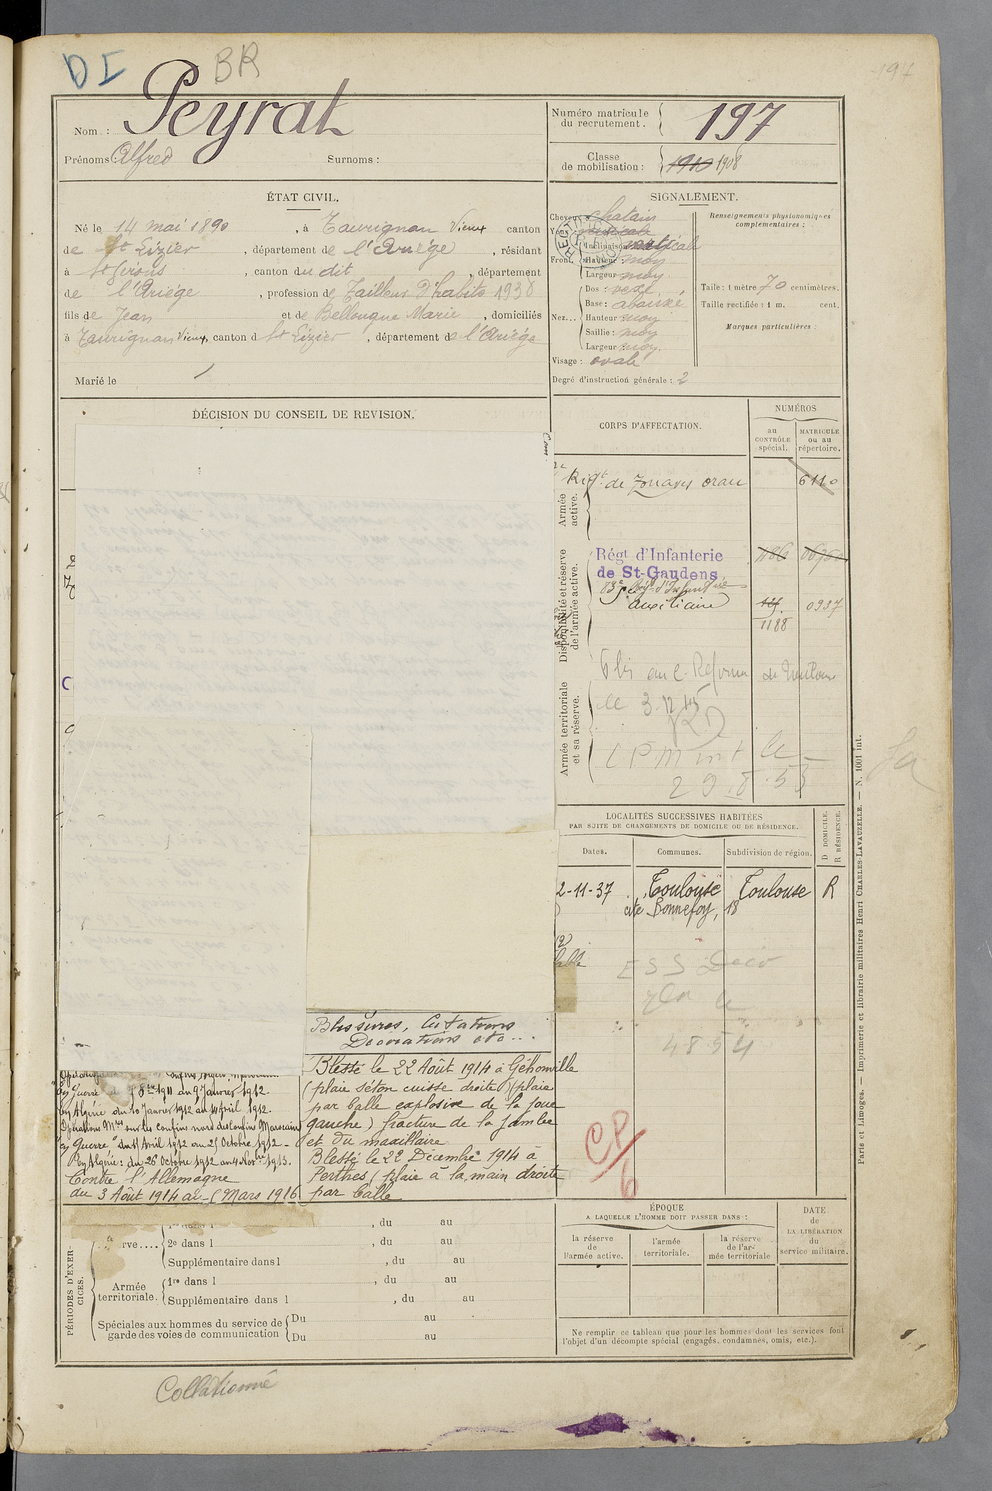 DI
BR
197
Nom : Peyrat
Prénoms : Alfred Surnoms :
Numéro matricule du recrutement. 197
Classe de mobilisation : 1910 1908
ÉTAT CIVIL.
Né le 14 mai 1890, à Taurignan Vieux canton
de St Lizier, département de l'Ariège, résidant
à St Girons, canton du dit, département
de l'Ariège, profession de Tailleur d'habits 1938
fils de Jean et de Bellougue Marie, domiciliés
à Taurignan Vieux, canton d St Lizier, département de l'Ariège
Marié le
SIGNALEMENT.
Cheveux chatain
Yeux
Front. Inclinaison verticale
Hauteur moy
Largeur moy
Nez... Dos : vexe
Base : abaissé
Hauteur moy
Saillie : moy
Largeur moy
Visage : ovale
Degré d'instruction générale : 2
Renseignements physionomiques
complémentaires :
Taille : 1 mètre 70 centimètres.
Taille rectifiée : 1 m. cent.
Marques particulières :
DÉCISION DU CONSEIL DE REVISION.
CORPS D'AFFECTATION.
NUMÉROS
au CONTRÔLE spécial.
MATRICULE ou au répertoire.
Armée active.
2e Régt de Zouaves Oran 6110
Disponibilité et réserve de l'armée active.
Régt d'Infanterie
de St-Gaudens
83e Régt d'Infanterie
auxiliaire 0937
1188
Armée territoriale et sa réserve.
6 bis au c. Réforme de Toulouse
le 3.12.45
RD
29.8.53
LOCALITÉS SUCCESSIVES HABITÉES
PAR SUITE DE CHANGEMENTS DE DOMICILE OU DE RÉSIDENCE.
Dates. Communes. Subdivision de région. D DOMICILE. R RÉSIDENCE.
2-11-37 Toulouse Toulouse R
cité Bonnefoy, 18
ESS Deco
4854
CP/6
Blessures, Citations
Décorations etc...
Blessé le 22 Août 1914 à Géhonville
(plaie séton cuisse droite) (plaie
par balle explosive de la joue
gauche) fracture de la jambe
et du maxillaire
Blessé le 22 Décembre 1914 à
Perthes (plaie à la main droite
par balle
au 9 Janvier 1912.
En Algérie du 10 Janvier 1912 au 10 Avril 1912.
Opérations Mres sur les confins nord des confins Marocains
"en Guerre" du 11 Avril 1912 au 25 Octobre 1912 -
En Algérie : du 26 Octobre 1912 au 4 Novbre 1913.
Contre l'Allemagne
du 3 Août 1914 au 6 Mars 1916
PÉRIODES D'EXERCICES.
1re dans l , du au
rve.... 2e dans l , du au
Supplémentaire dans l , du au
Armée territoriale. 1re dans l , du au
Supplémentaire dans l , du au
Spéciales aux hommes du service de garde des voies de communication Du au
Du au
ÉPOQUE
A LAQUELLE L'HOMME DOIT PASSER DANS :
la réserve de l'armée active.
l'armée territoriale.
la réserve de l'armée territoriale
DATE de LA LIBÉRATION du service militaire.
Ne remplir ce tableau que pour les hommes dont les services font
l'objet d'un décompte spécial (engagés, condamnés, omis, etc.).
Paris et Limoges. — Imprimerie et librairie militaires Henri CHARLES-LAVAUZELLE. — N. 1001 int.
Collationné